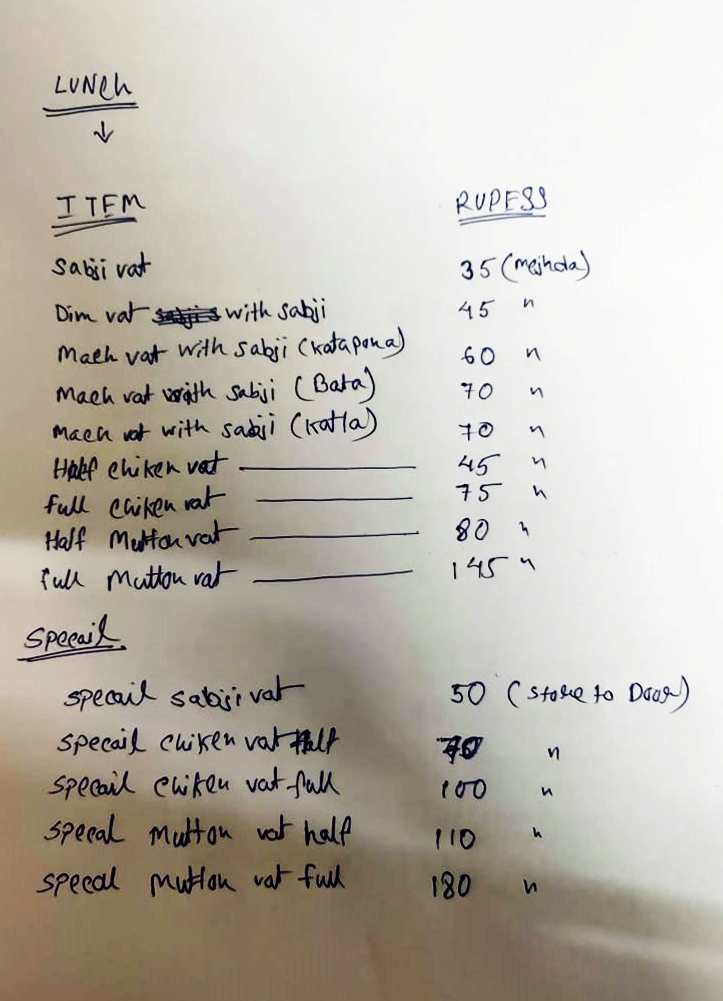 LUNch
↓
ITEM RUPESS
Sabji vat 35 (mejhda)
Dim vat with sabji 45 "
Mach vat with sabji (Katapona) 60 "
Mach vat with sabji (Bata) 70 "
Mach vat with sabji (Katla) 70 "
Half chiken vat 45 "
full chiken vat 75 "
Half Mutton vat 80 "
full Mutton vat 145 "
Specail
specail sabji vat 50 (Store to Door)
specail chiken vat Half 70 "
specail chiken vat full 100 "
specal Mutton vat half 110 "
specal Mutton vat full 180 "